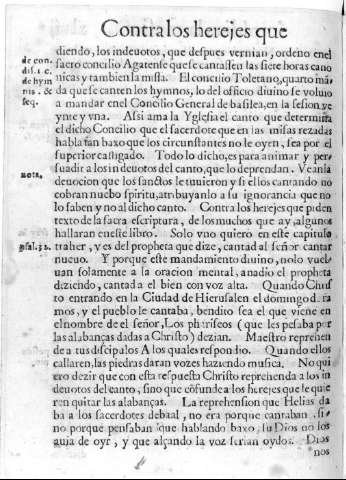 Contra los herejes que
diendo, los indeuotos, que despues vernian, ordeno enel
de con.
sacro concilio Agatense que se cantassen las siete horas cano
dis. 1 c.
nicas y tambien la missa. El concilio Toletano, quarto mã
de hym
da que se canten los hymnos, lo del officio diuino se voluio
nis. &
a mandar enel Concilio General de basilea, en la sesion ve
seq.
ynte y vna. Assi ama la Yglesia el canto que determina
el dicho Concilio que el sacerdote que en las misas rezadas
habla tan baxo que los circunstantes no le oyen, sea por el
superior castigado. Todo lo dicho, es para animar y per
suadir a los indeuotos del canto, que lo deprendan. Vean la
nota,
deuocion que los sanctos le tuuieron y si ellos cantando no
cobran nueuo spiritu, atribuyanlo a su ignorancia que no
lo saben y no al dicho canto. Contra los herejes que piden
texto de la sacra escriptura, de los muchos que ay, algunos
hallaran en este libro. Solo vno quiero en este capitulo
psal. 32.
traher, y es del propheta que dize, cantad al señor cantar
nueuo. Y porque este mandamiento diuino, no lo vuel
uan solamente a la oracion mental, anadio el propheta
diziendo, cantad a el bien con voz alta. Quando Chris
to entrando en la Ciudad de Hierusalen el domingo d. ra
mos, y el pueblo le cantaba, bendito sea el que viene en
el nombre de el señor, Los phariseos (que les pesaba por
las alabanças dadas a Christo) dezian. Maestro reprehen
de a tus discipulos A los quales respondio. Quando ellos
callaren, las piedras daran vozes haziendo musica. No qui
ero dezir que con esta respuesta Christo reprehenda a los in
deuotos del canto, sino que cõfunde a los herejes que le quie
ren quitar las alabanças. La reprehension que Helias da
ba a los sacerdotes de baal, no era porque cantaban, si
no porque pensaban que hablando baxo, su Dios no los
auia de oyr, y que alçando la voz serian oydos. Dios
nos